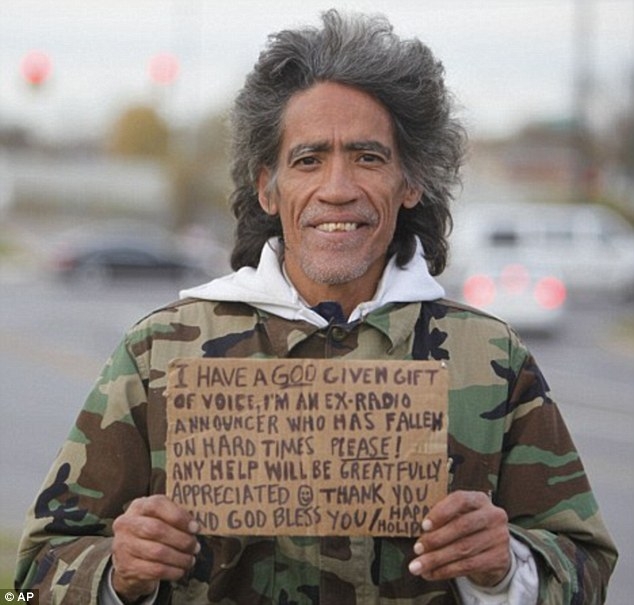 I HAVE A GOD GIVEN GIFT
OF VOICE, I'M AN EX-RADIO
ANNOUNCER WHO HAS FALLEN
ON HARD TIMES PLEASE!
ANY HELP WILL BE GREATFULLY
APPRECIATED ☺ THANK YOU
AND GOD BLESS YOU/HAPP
HOLID
© AP